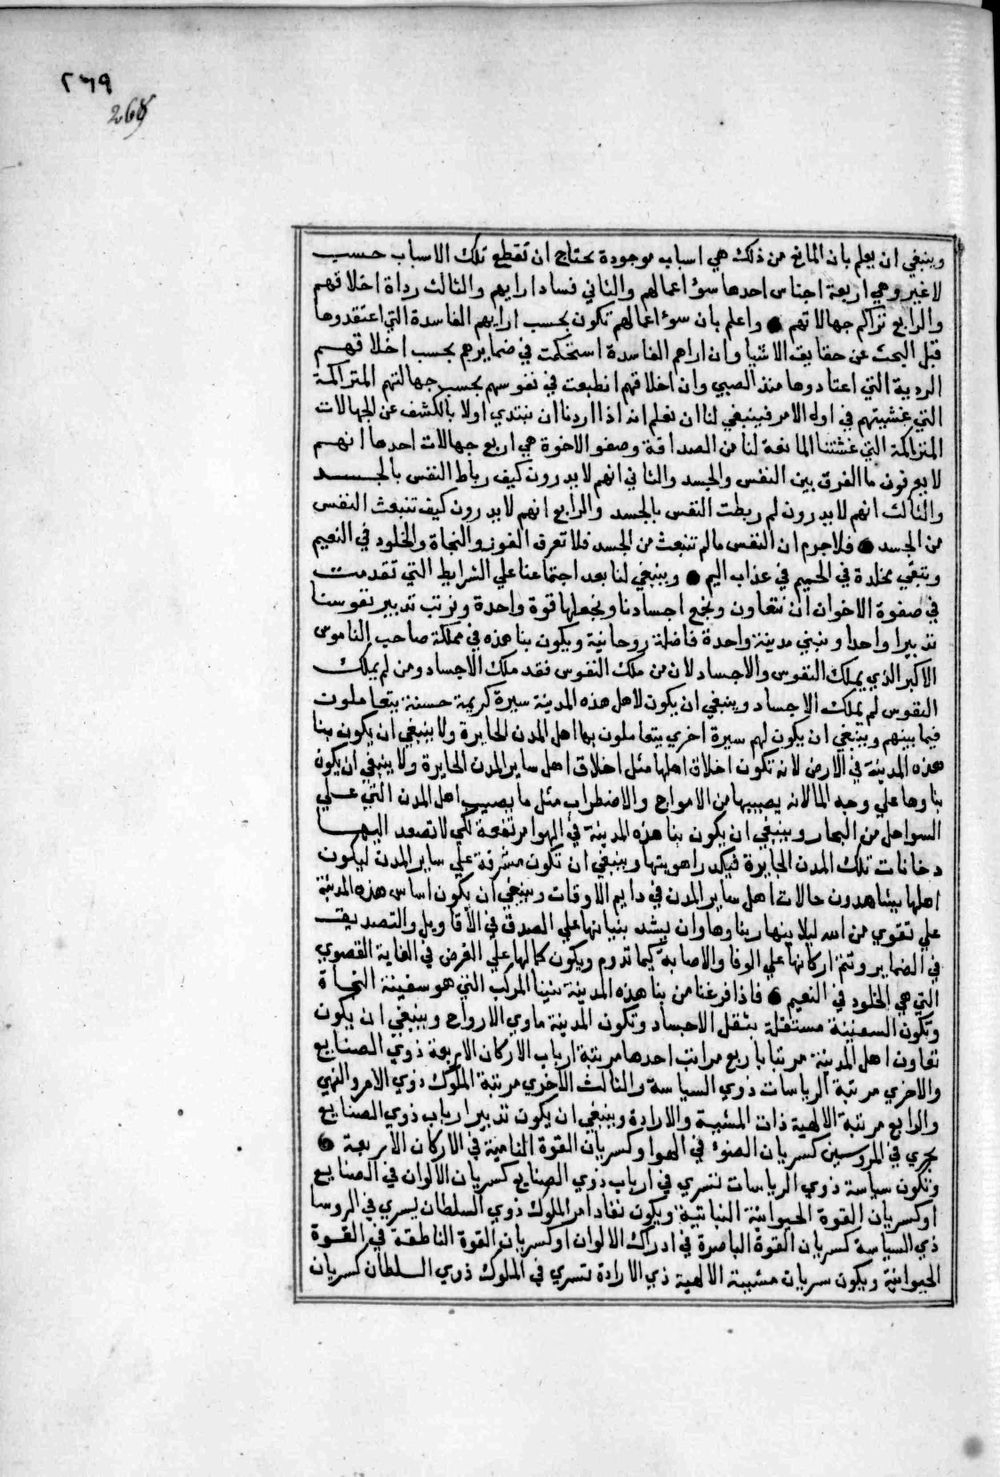 ٢٦٩
269
وينبغي ان يعلم بان المانع من ذلك هي اسباب موجودة يحتاج ان تقطع تلك الاسباب حسب
لا غير وهي اربعة اجناس احدها سوٴ اعمالهم والثاني فساد ارايهم والثالث رداة اخلاقهم
والرابع تراكم جهالاتهم واعلم بان سوٴ اعمالهم تكون بحسب ارايهم الفاسدة التي اعتقدوها
قبل البحث عن حقايق الاشيا وان اراهم الفاسدة استحكمت في ضمايرهم بحسب اخلاقهم
الردية التي اعتادوها منذ الصبي وان اخلاقهم انطبعت في نفوسهم بحسب جهالتهم المتراكمة
التي غشيتهم في اول الامر فينبغي لنا ان نعلم انه اذا اردنا ان نبتدي اولا بالكشف عن الجهالات
المتراكمة التي غشتنا المانعة لنا من الصداقة وصفو الاخوة هي اربع جهالات احدها انهم
لا يعرفون ما الفرق بين النفس والجسد والثاني انهم لا يدرون كيف رباط النفس بالجسد
والثالث انهم لا يدرون لم ربطت النفس بالجسد والرابع انهم لا يدرون كيف تنبعث النفس
من الجسد فلا جرم ان النفس ما لم تنبعث من الجسد فلا تعرف الفوز والنجاة والخلود في النعيم
وتبقي مخلدة في الجحيم في عذاب اليم وينبغي لنا بعد اجتماعنا علي الشرايط التي تقدمت
في صفوة الاخوان ان نتعاون ونجمع اجسادنا ونجعلها قوة واحدة ونرتب تدبير نفوسنا
تدبيرا واحدا ونبني مدينة واحدة فاضلة روحانية ويكون بنا هذه في مملكة صاحب الناموس
الاكبر الذي يملك النفوس والاجساد لان من ملك النفوس فقد ملك الاجساد ومن لم يملك
النفوس لم يملك الاجساد وينبغي ان يكون لاهل هذه المدينة سيرة كريمة حسنة يتعاملون
فيما بينهم وينبغي ان يكون لهم سيرة اخري يتعاملون بها اهل المدن الجايرة ولا ينبغي ان يكون بنا
هذه المدينة في الارض لانه تكون اخلاق اهلها مثل اخلاق اهل ساير المدن الجايرة ولا ينبغي ان يكون
بناوها علي وجه الما لانه يصيبها من الامواج والاضطراب مثل ما يصيب اهل المدن التي علي
السواحل من البحار وينبغي ان يكون بنا هذه المدينة في الهوا مرتفعة لكي لا تصعد اليها
دخانات تلك المدن الجايرة فيكدر اهويتها وينبغي ان تكون مشرفة علي ساير المدن ليكون
اهلها يشاهدون حالات اهل ساير المدن في دايم الاوقات وينبغي ان يكون اساس هذه المدينة
علي تقوي من الله ليلا ينهار بناوها وان يشد بنيانها علي الصدق في الاقاويل والتصديق
في الضماير وتتم اركانها علي الوفا والاصابة كيما تدوم ويكون كمالها علي الغرض في الغاية القصوي
التي هي الخلود في النعيم فاذا فرغنا من بنا هذه المدينة بنينا المركب التي هو سفينة النجاة
وتكون السفينة مستقلة بثقل الاجساد وتكون المدينة ماوي الارواح وينبغي ان يكون
تعاون اهل المدينة مرتبا باربع مراتب احدها مرتبة ارباب الاركان الاربعة ذوي الصنايع
والاخري مرتبة الرياسات ذوي السياسة والثالث الاخري مرتبة الملوك ذوي الامر والنهي
والرابع مرتبة الالهية ذات المشيية والارادة وينبغي ان يكون تدبير ارباب ذوي الصنايع
يجري في المروسين كسريان الضوٴ في الهوا وكسريان القوة النامية في الاركان الاربعة
وتكون سياسة ذوي الرياسات تسري في ارباب ذوي الصنايع كسريان الالوان في الصنايع
او كسريان القوة الحيوانية النباتية ويكون نفاد امر الملوك ذوي السلطان يسري في الروسا
ذي السياسة كسريان القوة الباصرة في ادراك الالوان او كسريان القوة الناطقة في القوة
الحيوانية ويكون سريان مشيية الالهية ذي الارادة تسري في الملوك ذوي السلطان كسريان